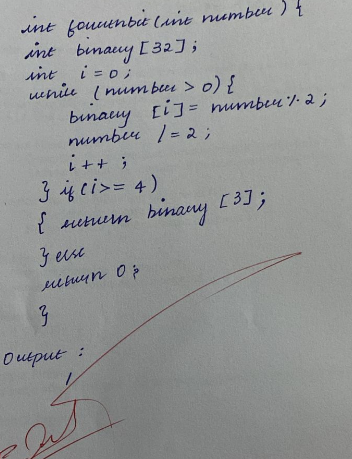 int fourthbit (int number) {
int binary [32];
int i = 0;
while (number > 0) {
binary [i] = number % 2;
number /= 2;
i++;
} if (i >= 4)
{ return binary [3];
} else
return 0;
}
Output :
1